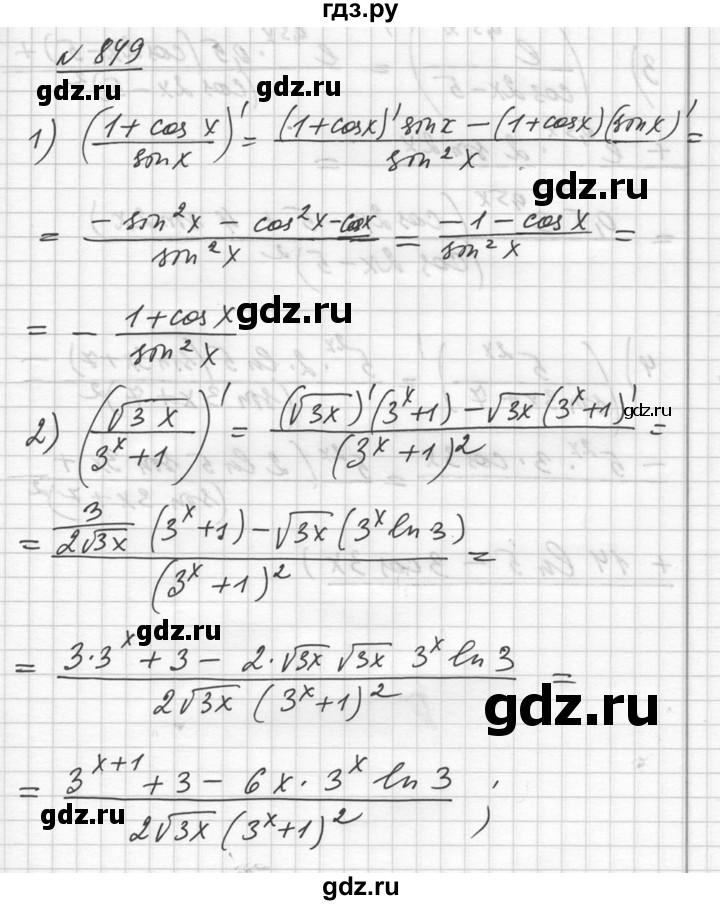 гдз.ру
№ 849
1) ((1 + cos x)/(sin x))' = ((1+cosx)' sinx − (1+cosx)(sinx)')/(sin² x) =
gdz.ru
= (− sin²x − cos²x − cosx)/(sin² x) = (−1 − cos x)/(sin² x) =
gdz.ru
gdz.ru
= − (1+cos x)/(sin² x)
2) ((√3x)/(3ˣ+1))' = ((√3x)'(3ˣ+1) − √3x(3ˣ+1)')/((3ˣ+1)²) =
gdz.ru
gdz.ru
= (3/(2√3x) (3ˣ+1) − √3x (3ˣ ln 3))/((3ˣ+1)²) =
gdz.ru
= (3·3ˣ + 3 − 2·√3x √3x 3ˣ ln 3)/(2√3x (3ˣ+1)²) =
gdz.ru
= (3ˣ⁺¹ + 3 − 6x · 3ˣ ln 3)/(2√3x (3ˣ+1)²) ;
gdz.ru
gdz.ru